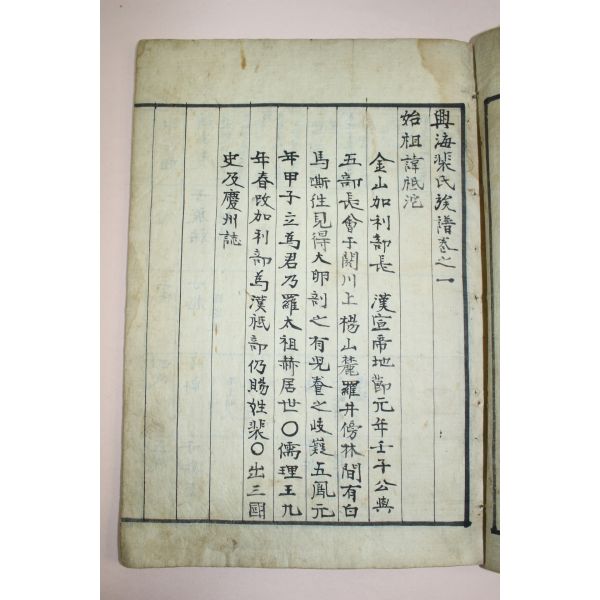 興海裴氏族譜卷之一
始祖諱祗沱
金山加利部長 漢宣帝地節元年壬子公與
五部長會于閼川上楊山麓羅井傍林間有白
馬嘶往見得大卵剖之有児養之岐嶷五鳳元
年甲子立爲君乃羅太祖赫居世〇儒理王九
年春改加利部爲漢祗部仍賜姓裴〇出三國
史及慶州誌